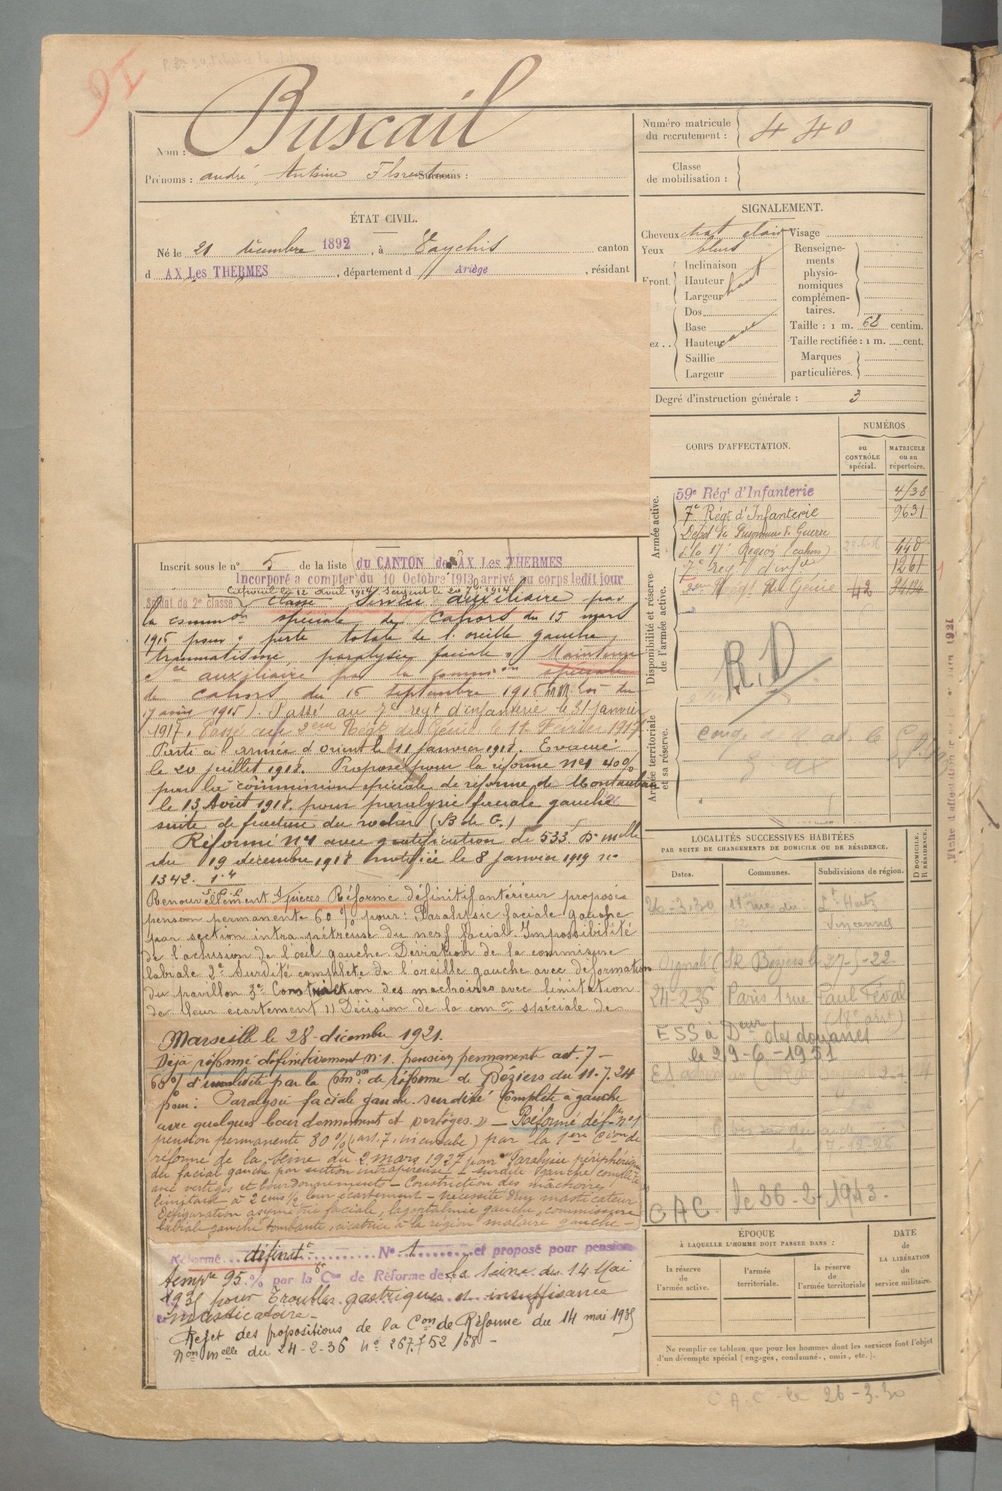 Nom : Buscail
Prénoms : andré, Antoine Florent Surnoms :
Numéro matricule du recrutement : 440
Classe de mobilisation :
ÉTAT CIVIL.
Né le 21 décembre 1892, à Vaychis canton
d AX Les THERMES, département d Ariège, résidant
SIGNALEMENT.
Cheveux chat clair
Yeux bleus
Front.
Inclinaison
Hauteur
Largeur
haut
ez..
Dos
Base
Hauteur
Saillie
Largeur
cave
Visage
Renseignements physionomiques complémentaires.
Taille : 1 m. 68 centim.
Taille rectifiée : 1 m. cent.
Marques particulières.
Degré d'instruction générale : 3
CORPS D'AFFECTATION.
NUMÉROS
au CONTRÔLE spécial.
MATRICULE ou au répertoire.
Armée active.
59e Régt d'Infanterie 4/38
7e Régt d'Infanterie 9631
Dépôt de Prisonniers de Guerre
de la 17e Région (Cahors) 440
7e reg d'infie 1261
Génie 42
Disponibilité et réserve de l'armée active.
R.D
Armée territoriale et sa réserve.
Inscrit sous le n° 5 de la liste du CANTON de AX Les THERMES
Incorporé a compter du 10 Octobre 1913 arrivé au corps ledit jour
Soldat de 2e classe Caporal le 12 avril 1914 Sergent le
Classé Service auxiliaire par
la common spéciale de Cahors du 15 mars
1915 pour : perte totale de l'oreille gauche,
traumatisme, paralysie faciale. Maintenu
sce auxiliaire par la common spéciale
de Cahors du 16 septembre 1915 loi du
17 août 1915). Passé au 7e regt d'infanterie le 31 janvier
1917. Passé au 2ème Régt du Génie le 11 Février 1917
Parti à armée d'orient le 11 janvier 1918. Evacué
le 20 juillet 1918. Proposé pour la réforme no 1 40%
par la commission spéciale de réforme de Montauban
le 13 Août 1918. pour paralysie faciale gauche
suite de fracture du rocher (B de G.)
Réformé no 1 avec gratification de 533. Don melle
du 19 décembre 1918 notifiée le 8 janvier 1919 no
1342.
Renouvellement Réforme définitif antérieur proposé
pension permanente 60% pour : Paralysie faciale gauche
par section intra pétreuse du nerf facial. Impossibilité
de l'oclusion de l'œil gauche. Déviation de la commissure
labiale 2e Surdité complète de l'oreille gauche avec déformation
du pavillon 3e Constriction des machoires avec limitation
de leur écartement. Décision de la comon spéciale de
Marseille le 28 décembre 1921.
Déjà réformé définitivement n° 1. pension permanent art. 7 -
60% d'invalidité par la Con de réforme de Béziers du 11.7.24
pour : Paralysie faciale gauche. surdité complète à gauche
avec quelques bourdonnements et vertiges. » - Réformé déf. n° 1
pension permanente 80% (art. 7. incurable) par la 1ère Con de
réforme de la Seine du 2 mars 1927 pour "Paralysie périphérique
du facial gauche par section intrapétreuse - surdité gauche complète
avec vertiges et bourdonnements - Constriction des mâchoires
limitant à 2 cm ½ leur écartement - nécessité d'un masticateur
défiguration asymétrie faciale, lagophtalmie gauche, commissure
labiale gauche tombante, cicatrice à la région malaire gauche -
Réformé définit N° 1 et proposé pour pension
tempre 95% par la Con de Réforme de la Seine du 14 Mai
1935 pour Troubles gastriques et insuffisance
masticatoire -
Rejet des propositions de la Con de Réforme du 14 mai 1935
Don melle du 24-2-36 n° 267.752 168 -
LOCALITÉS SUCCESSIVES HABITÉES
PAR SUITE DE CHANGEMENTS DE DOMICILE OU DE RÉSIDENCE.
Dates. Communes. Subdivisions de région. D DOMICILE. R RÉSIDENCE.
26-3-30 11 rue du Lt Heitz
Vincennes
Signalé Béziers le 27-5-22.
24-2-36 Paris 1 rue Paul Féval
(18e arrt)
ESS à Deur des douanes
le 29-6-1951
CAC. le 26-2-1943.
ÉPOQUE
À LAQUELLE L'HOMME DOIT PASSER DANS :
la réserve de l'armée active.
l'armée territoriale.
la réserve de l'armée territoriale
DATE de LA LIBÉRATION du service militaire.
Ne remplir ce tableau que pour les hommes dont les services font l'objet
d'un décompte spécial (engagés, condamnés, omis, etc.).
CAC le 26-3-30